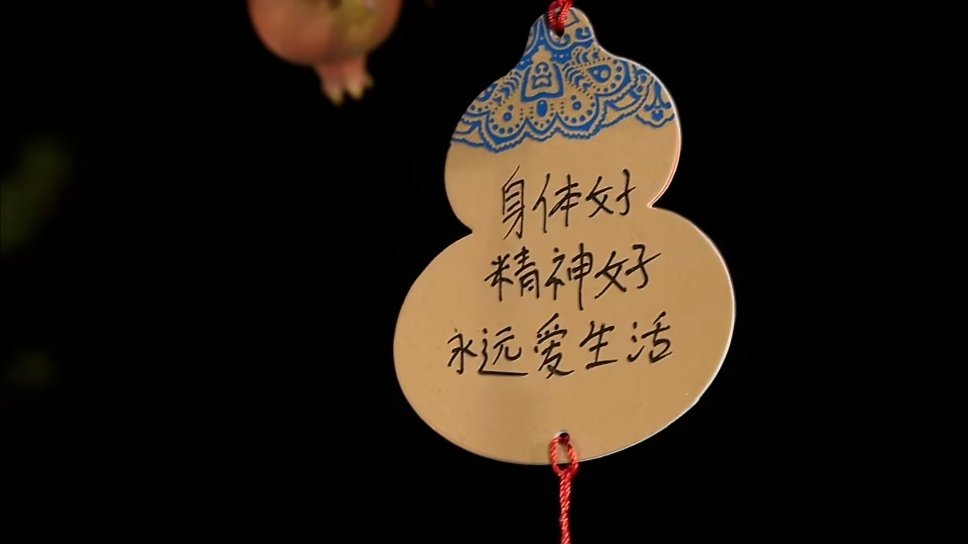 身体好
精神好
永远爱生活